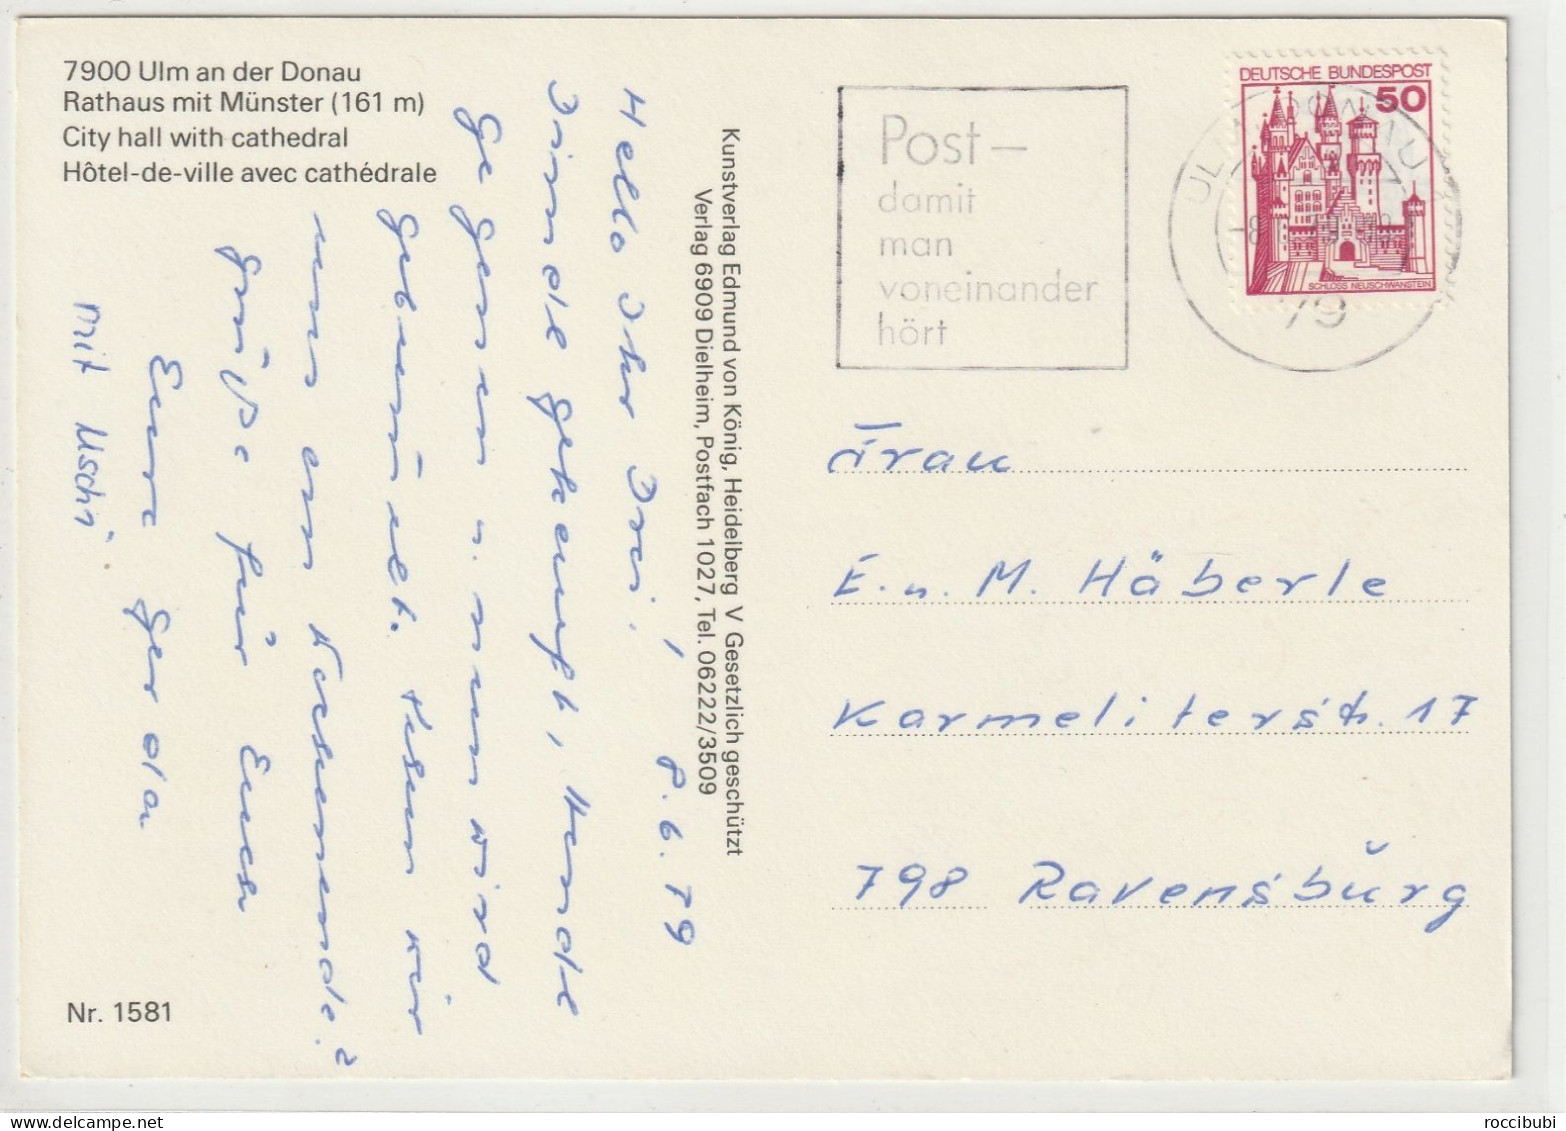 7900 Ulm an der Donau
Rathaus mit Münster (161 m)
City hall with cathedral
Hôtel-de-ville avec cathédrale
8.6.79
Hallo Ihr Drei!
Dirndl gekauft, Hemdl
gegessen u. nun wird
gebummelt. Sehen wir
uns am Wochenende?
Grüße für Euch
Eure Gerda
mit Uschi
Nr. 1581
Kunstverlag Edmund von König, Heidelberg V Gesetzlich geschützt
Verlag 6909 Dielheim, Postfach 1027, Tel. 06222/3509
Post –
damit
man
voneinander
hört
ULM, DONAU
79
DEUTSCHE BUNDESPOST
50
SCHLOSS NEUSCHWANSTEIN
Frau
E. u. M. Häberle
Karmeliterstr. 17
798 Ravensburg
roccibubi